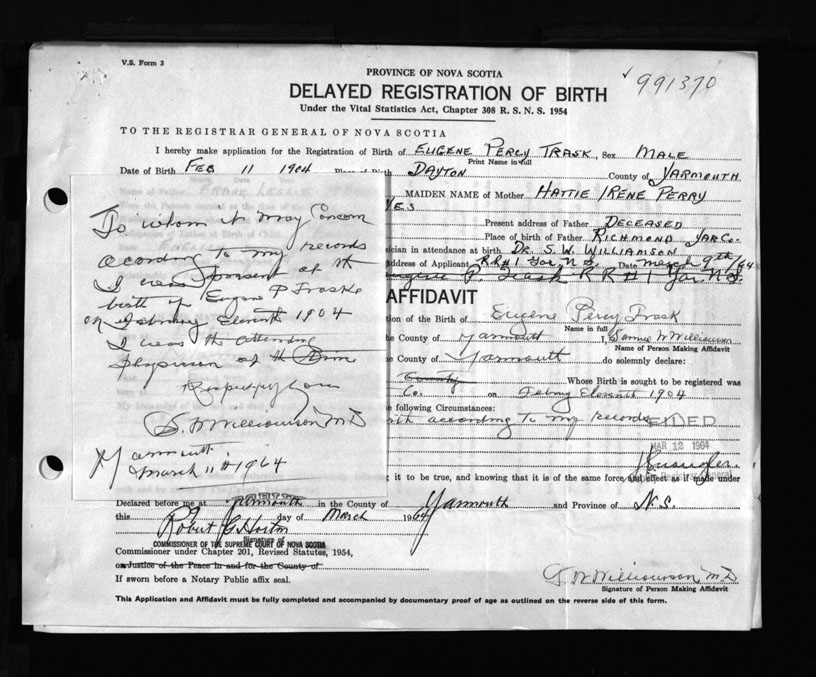 V.S. Form 3
PROVINCE OF NOVA SCOTIA
991370
DELAYED REGISTRATION OF BIRTH
Under the Vital Statistics Act, Chapter 308 R. S. N. S. 1954
TO THE REGISTRAR GENERAL OF NOVA SCOTIA
I hereby make application for the Registration of Birth of EUGENE PERCY TRASK, Sex MALE
Print Name in full
Date of Birth FEB 11 1904 DAYTON County of YARMOUTH
MAIDEN NAME of Mother HATTIE IRENE PERRY
YES
Present address of Father DECEASED
Place of birth of Father RICHMOND YAR CO.
ician in attendance at birth DR. S. W. WILLIAMSON
ddress of Applicant RR#1 Yar N.S. Date March 9th/64
Eugene P. Trask RR#1 Yar. N.S.
To whom it may Concern
acording to my records
I was present at the
birth of Eugene P Traske
on Febuary Eleventh 1904
I was the attending
physician at the time
Respectfully yours
S. W Williamson M.D
Yarmouth
March 11th 1964
AFFIDAVIT
tion of the Birth of Eugene Percy Trask
Name in full
he County of Yarmouth I, W Williamson
Name of Person Making Affidavit
he County of Yarmouth do solemnly declare:
County Whose Birth is sought to be registered was
Co. on Eleventh 1904
e following Circumstances:
according to my records
FILED
MAR 12 1964
g it to be true, and knowing that it is of the same force and effect as if made under
Declared before me at Yarmouth in the County of Yarmouth and Province of N.S.
this day of March 1964
Robert G Horton
Signature of
COMMISSIONER OF THE SUPREME COURT OF NOVA SCOTIA
Commissioner under Chapter 201, Revised Statutes, 1954,
or Justice of the Peace in and for the County of
If sworn before a Notary Public affix seal.
S. W Williamson M.D
Signature of Person Making Affidavit
This Application and Affidavit must be fully completed and accompanied by documentary proof of age as outlined on the reverse side of this form.